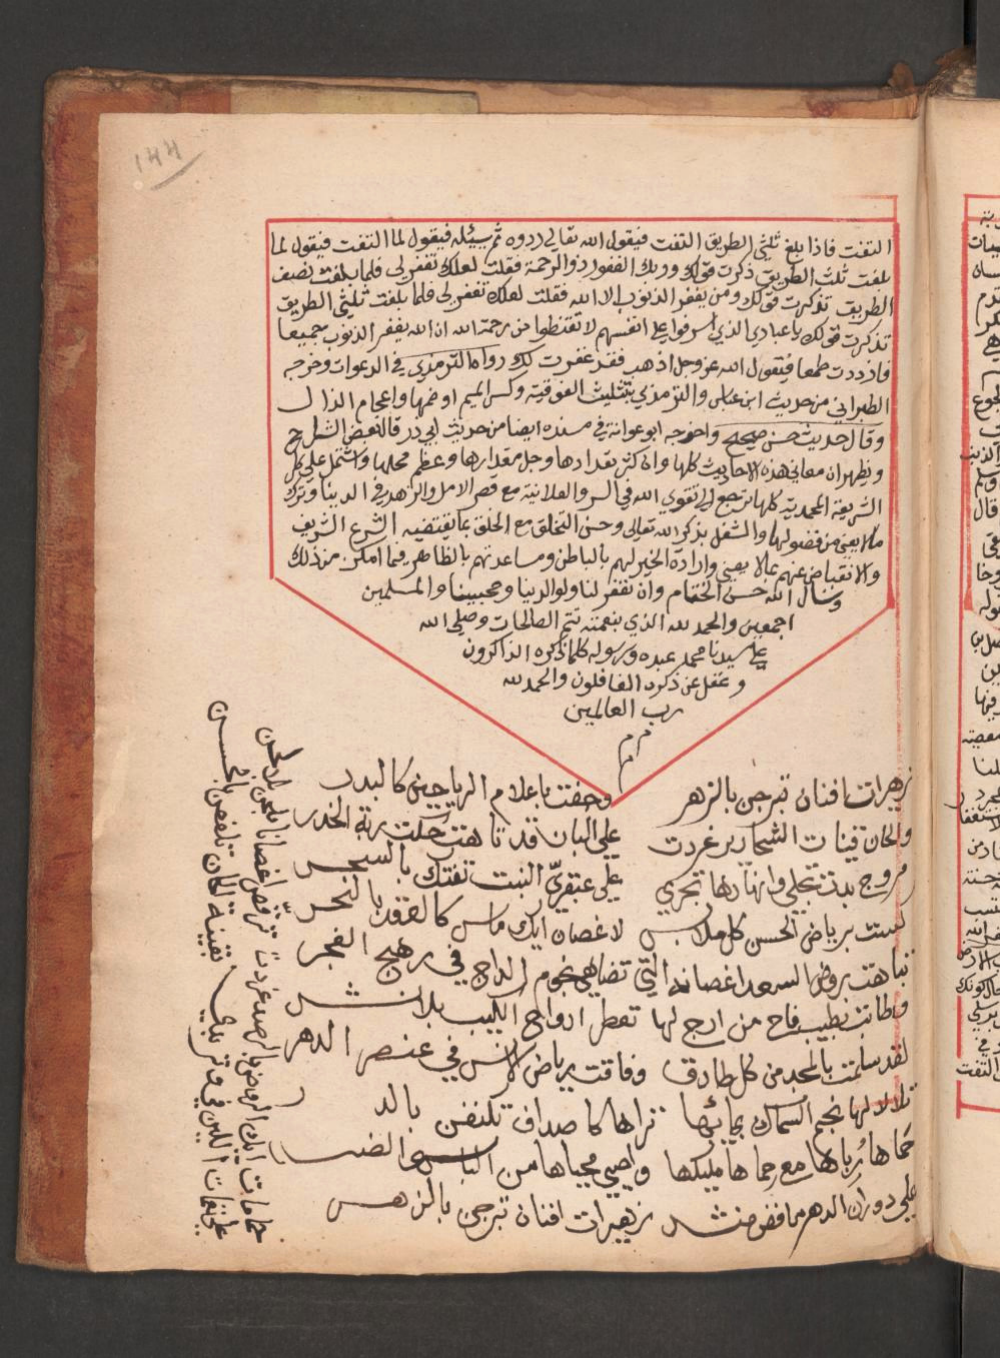 ١٤٤
التفت فاذا بلغ ثلثي الطريق التفت فيقول الله تعالى ردوه ثم يسئله فيقول لما التفت فيقول لما
بلغت ثلث الطريق ذكرت قولك وربك الغفور ذو الرحمة فقلت لعلك تغفر لي فلما بلغت نصف
الطريق تذكرت قولك ومن يغفر الذنوب الا الله فقلت لعلك تغفر لي فلما بلغت ثلثي الطريق
تذكرت قولك يا عبادي الذين اسرفوا على انفسهم لا تقنطوا من رحمة الله ان الله يغفر الذنوب جميعا
فازددت طمعا فيقول الله عز وجل اذهب فقد غفرت لك رواه الترمذي في الدعوات وخرجه
الطبراني من حديث ابن عباس والترمذي بتثليث الفوقية وكسر الميم او ضمها واعجام الذال
وقال حديث حسن صحيح واخرجه ابو عوانة في مسنده ايضا من حديث ابي ذر قال بعض الشراح
ويظهر ان معاني هذه الاحاديث كلها وان كثر تعدادها وجل مقدارها وعظم محلها واشتمل على كل
الشريعة المحمدية كلها ترجع الى تقوى الله في السر والعلانية مع قصر الامل والزهد في الدنيا وترك
ما لا يعني من فضولها والشغل بذكر الله تعالى وحسن التخلق مع الخلق بما يقتضيه الشرع الشريف
والانقباض عنهم بما لا يعني وارادة الخير لهم بالباطن ومساعدتهم بالظاهر فيما امكن من ذلك
ونسال الله حسن الختام وان يغفر لنا ولوالدينا ومحبينا والمسلمين
اجمعين والحمد لله الذي بنعمته تتم الصالحات وصلى الله
على سيدنا محمد عبده ورسوله كلما ذكره الذاكرون
وغفل عن ذكره الغافلون والحمد لله
رب العالمين
م م م
زهيرات افنان تبرجن بالزهر وحفت باعلام الرياحين كالبدر
والحان قينات الشحارير غردت على البان قد تاهت حكت ربة الخدر
مروج بدت تجلى وانهارها تجري على عبقري النبت تفتك بالسحر
كست برياض الحسن كل ملابس لاغصان ايك ماس كالعقد بالنحر
تباهت بروض السعد اغصانه التي تضاهي نجوم الداجي في رهج الفجر
وطابت بطيب فاح من ارج لها تعطر ارواح اللبيب بلا نشر
لقد سامت بالمجد من كل طارق وفاقت برياض الانس في عنصر الدهر
تلالا لها نجم السماك بجائها تراها كاصداف تكنفن بالدر
حماها رباها مع رحماها مليكها واحيي محياها من الباس الضر
على دوران الدهر ما فض منشد زهيرات افنان تبرجن بالزهر
حمامات ايك الروض بالرصد غردت ترقص اغصانا بلحن
على نغمات اللين في وتر بدى بقينة الحان تلغص بالحسن